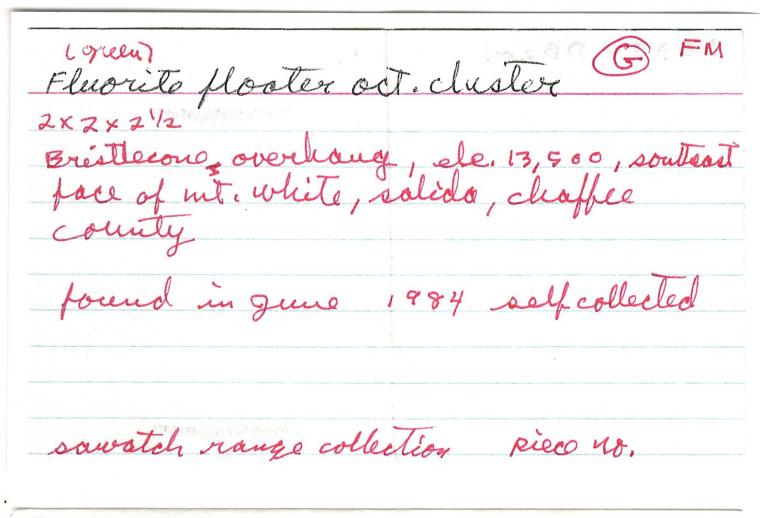 (green) G FM
Fluorite floater oct. cluster
2 x 2 x 2 1/2
Bristlecone, overhang, ele. 13,500, southeast
face of mt. white, salida, chaffee
county
found in june 1984 self collected
sawatch range collection piece no.